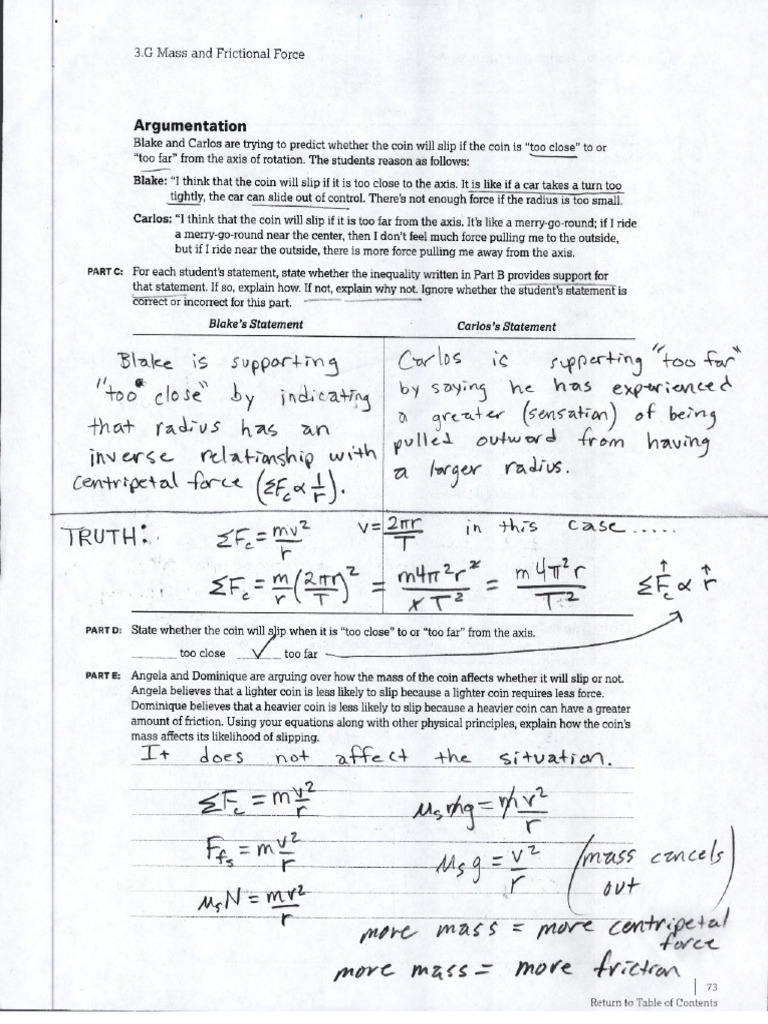 3.G Mass and Frictional Force
Argumentation
Blake and Carlos are trying to predict whether the coin will slip if the coin is "too close" to or
"too far" from the axis of rotation. The students reason as follows:
Blake: "I think that the coin will slip if it is too close to the axis. It is like if a car takes a turn too
tightly, the car can slide out of control. There's not enough force if the radius is too small.
Carlos: "I think that the coin will slip if it is too far from the axis. It's like a merry-go-round; if I ride
a merry-go-round near the center, then I don't feel much force pulling me to the outside,
but if I ride near the outside, there is more force pulling me away from the axis.
PART C: For each student's statement, state whether the inequality written in Part B provides support for
that statement. If so, explain how. If not, explain why not. Ignore whether the student's statement is
correct or incorrect for this part.
Blake's Statement
Blake is supporting
"too close" by indicating
that radius has an
inverse relationship with
centripetal force (ΣFc ∝ 1/r).
Carlos's Statement
Carlos is supporting "too far"
by saying he has experienced
a greater (sensation) of being
pulled outward from having
a larger radius.
TRUTH: ΣFc = mv²/r v = 2πr/T in this case.....
ΣFc = m/r (2πr/T)² = m4π²r²/rT² = m4π²r/T² ΣFc↑ ∝ r↑
PART D: State whether the coin will slip when it is "too close" to or "too far" from the axis.
______ too close __✓__ too far
PART E: Angela and Dominique are arguing over how the mass of the coin affects whether it will slip or not.
Angela believes that a lighter coin is less likely to slip because a lighter coin requires less force.
Dominique believes that a heavier coin is less likely to slip because a heavier coin can have a greater
amount of friction. Using your equations along with other physical principles, explain how the coin's
mass affects its likelihood of slipping.
It does not affect the situation.
ΣFc = mv²/r
Ffs = mv²/r
μsN = mv²/r
μsmg = mv²/r
μsg = v²/r
(mass cancels
out)
more mass = more centripetal
force
more mass = more friction
73
Return to Table of Contents